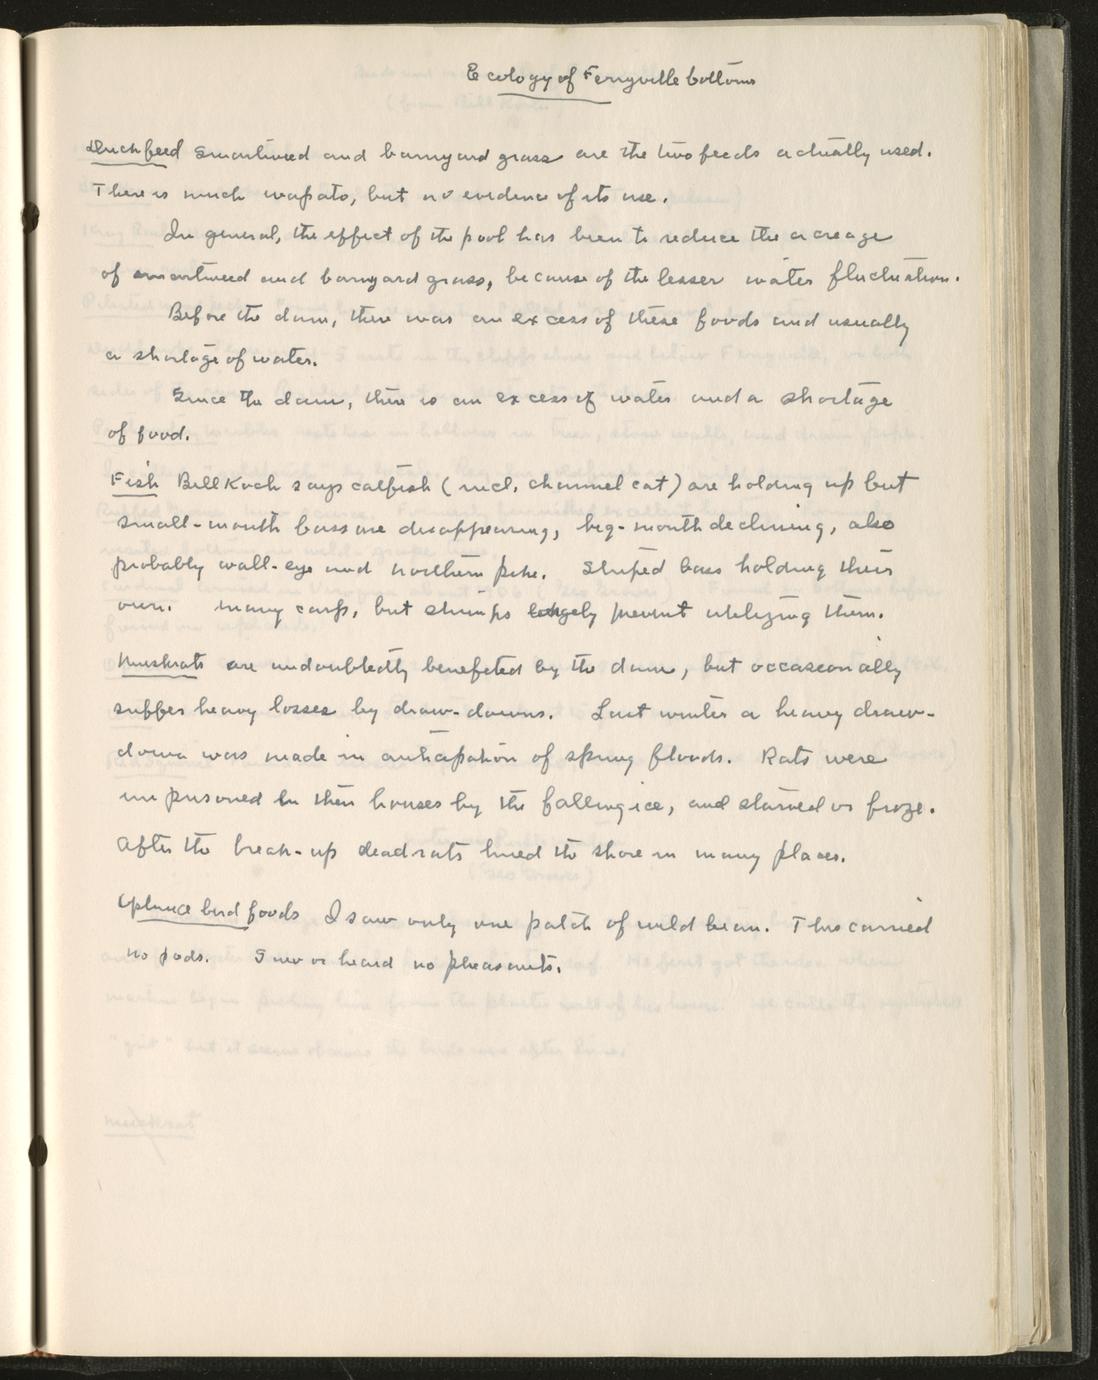 Ecology of Ferryville bottoms
Duck feed Smartweed and barnyard grass are the two feeds actually used.
There is much wapato, but no evidence of its use.
In general, the effect of the pool has been to reduce the acreage
of smartweed and barnyard grass, because of the lesser water fluctuation.
Before the dam, there was an excess of these foods and usually
a shortage of water.
Since the dam, there is an excess of water and a shortage
of food.
Fish Bill Koch says catfish (incl. channel cat) are holding up but
small-mouth bass are disappearing, big-mouth declining, also
probably wall-eye and northern pike. Striped bass holding their
own. Many carp, but stumps largely prevent utilizing them.
Muskrats are undoubtedly benefited by the dam, but occasionally
suffer heavy losses by draw-downs. Last winter a heavy draw-
down was made in anticipation of spring floods. Rats were
imprisoned in their houses by the falling ice, and starved or froze.
After the break-up dead rats lined the shore in many places.
Upland bird foods I saw only one patch of wild bean. This carried
no pods. I saw or heard no pheasants.